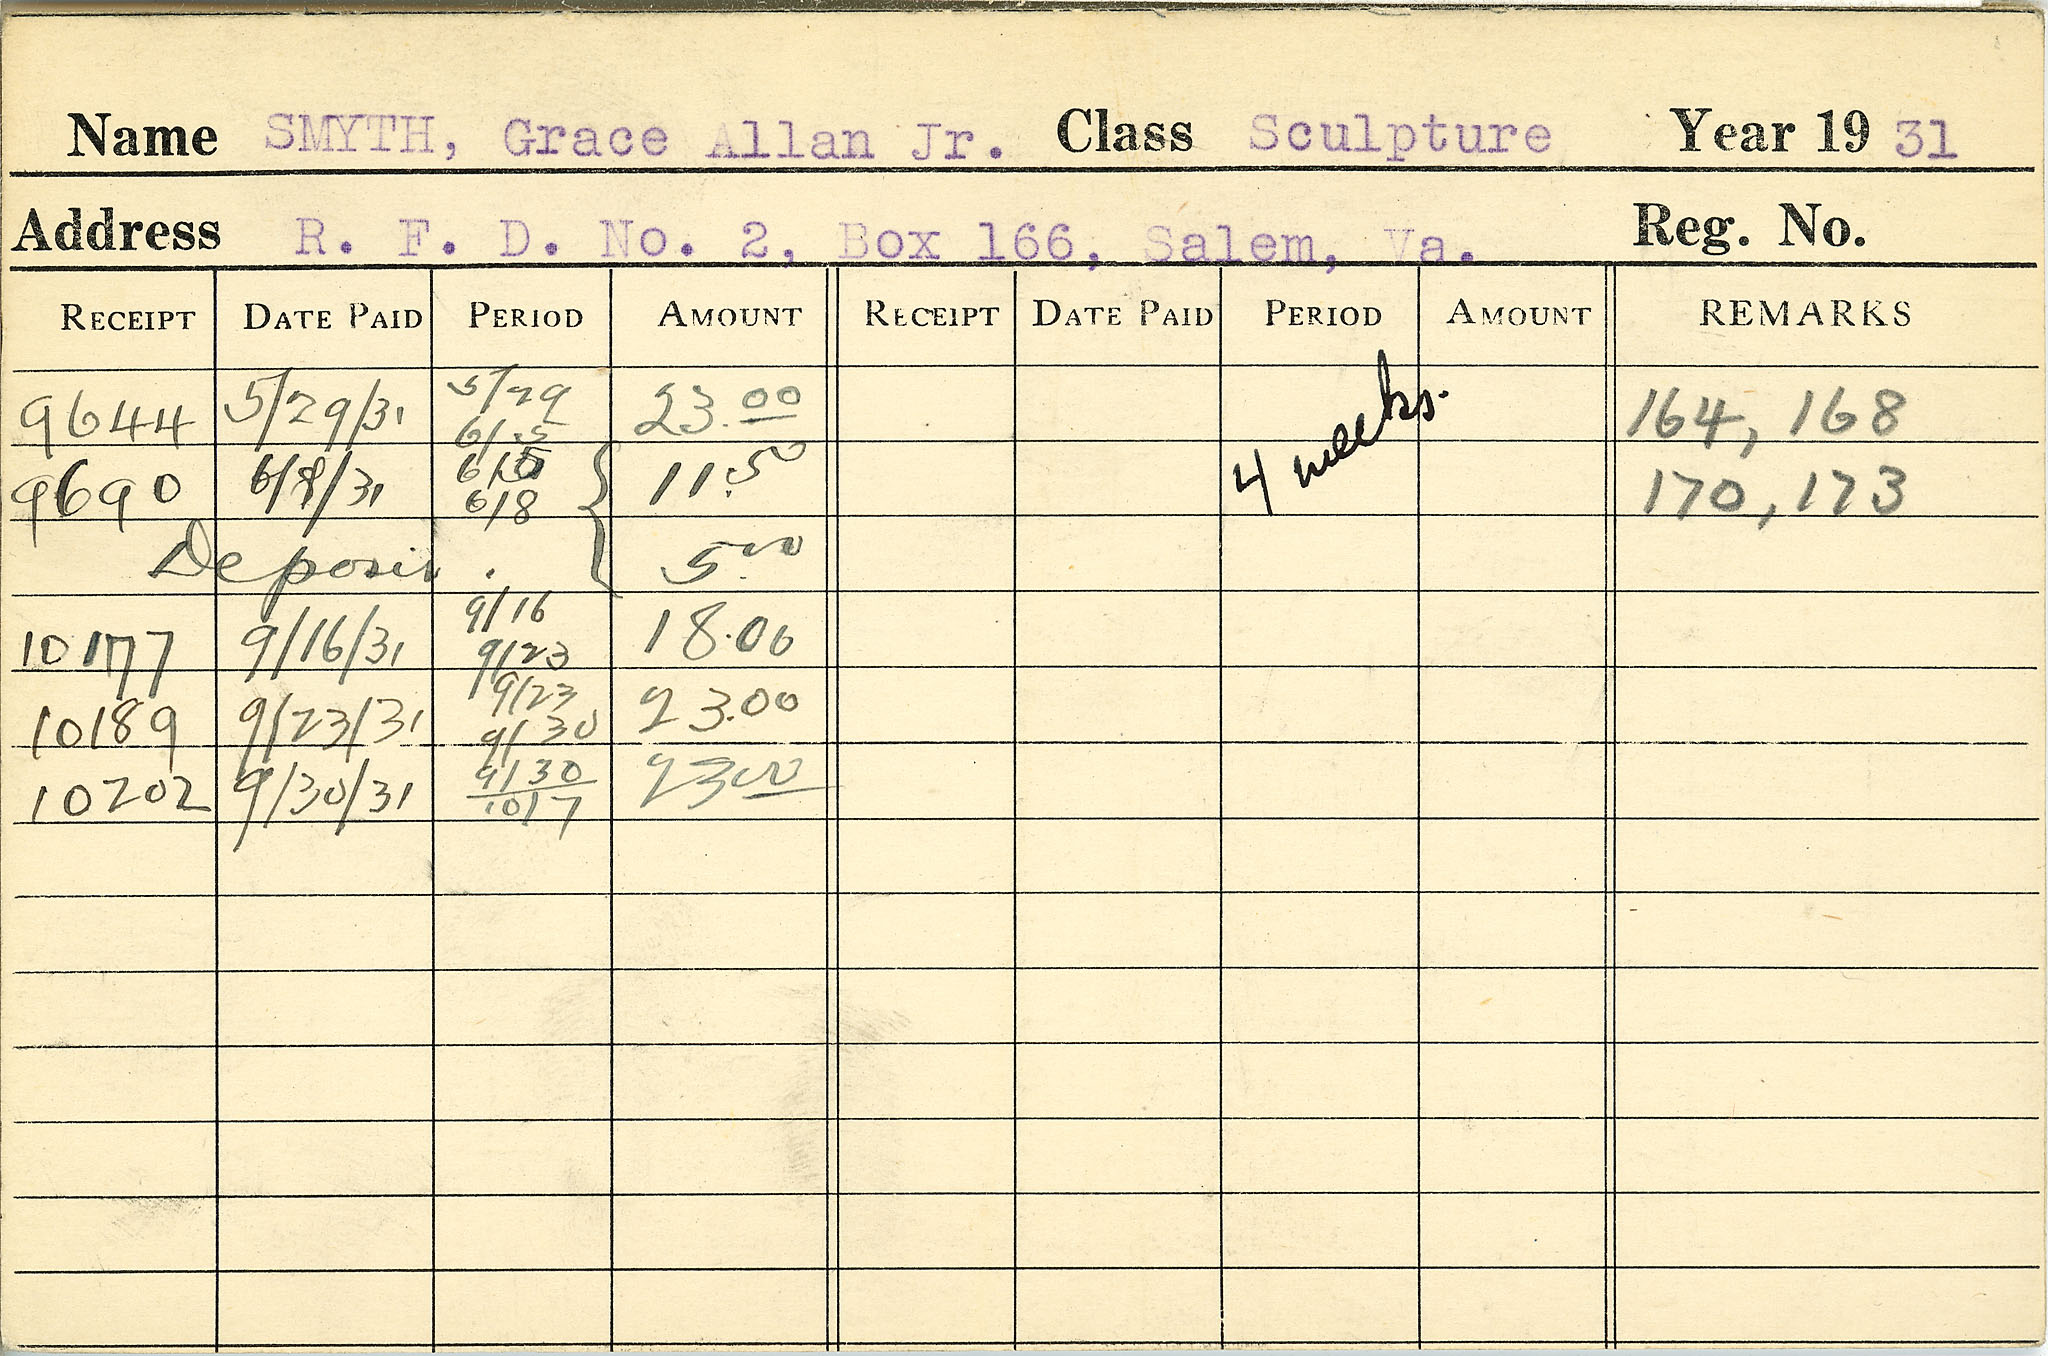 Name SMYTH, Grace Allan Jr. Class Sculpture Year 19 31
Address R. F. D. No. 2, Box 166, Salem, Va. Reg. No.
RECEIPT DATE PAID PERIOD AMOUNT RECEIPT DATE PAID PERIOD AMOUNT REMARKS
9644 5/29/31 5/29 6/5 23.00 164, 168
9690 6/8/31 6/8 11.50 4 weeks. 170, 173
Deposit. 5.00
10177 9/16/31 9/16 9/23 18.00
10189 9/23/31 9/23 9/30 23.00
10202 9/30/31 9/30 10/7 23.00